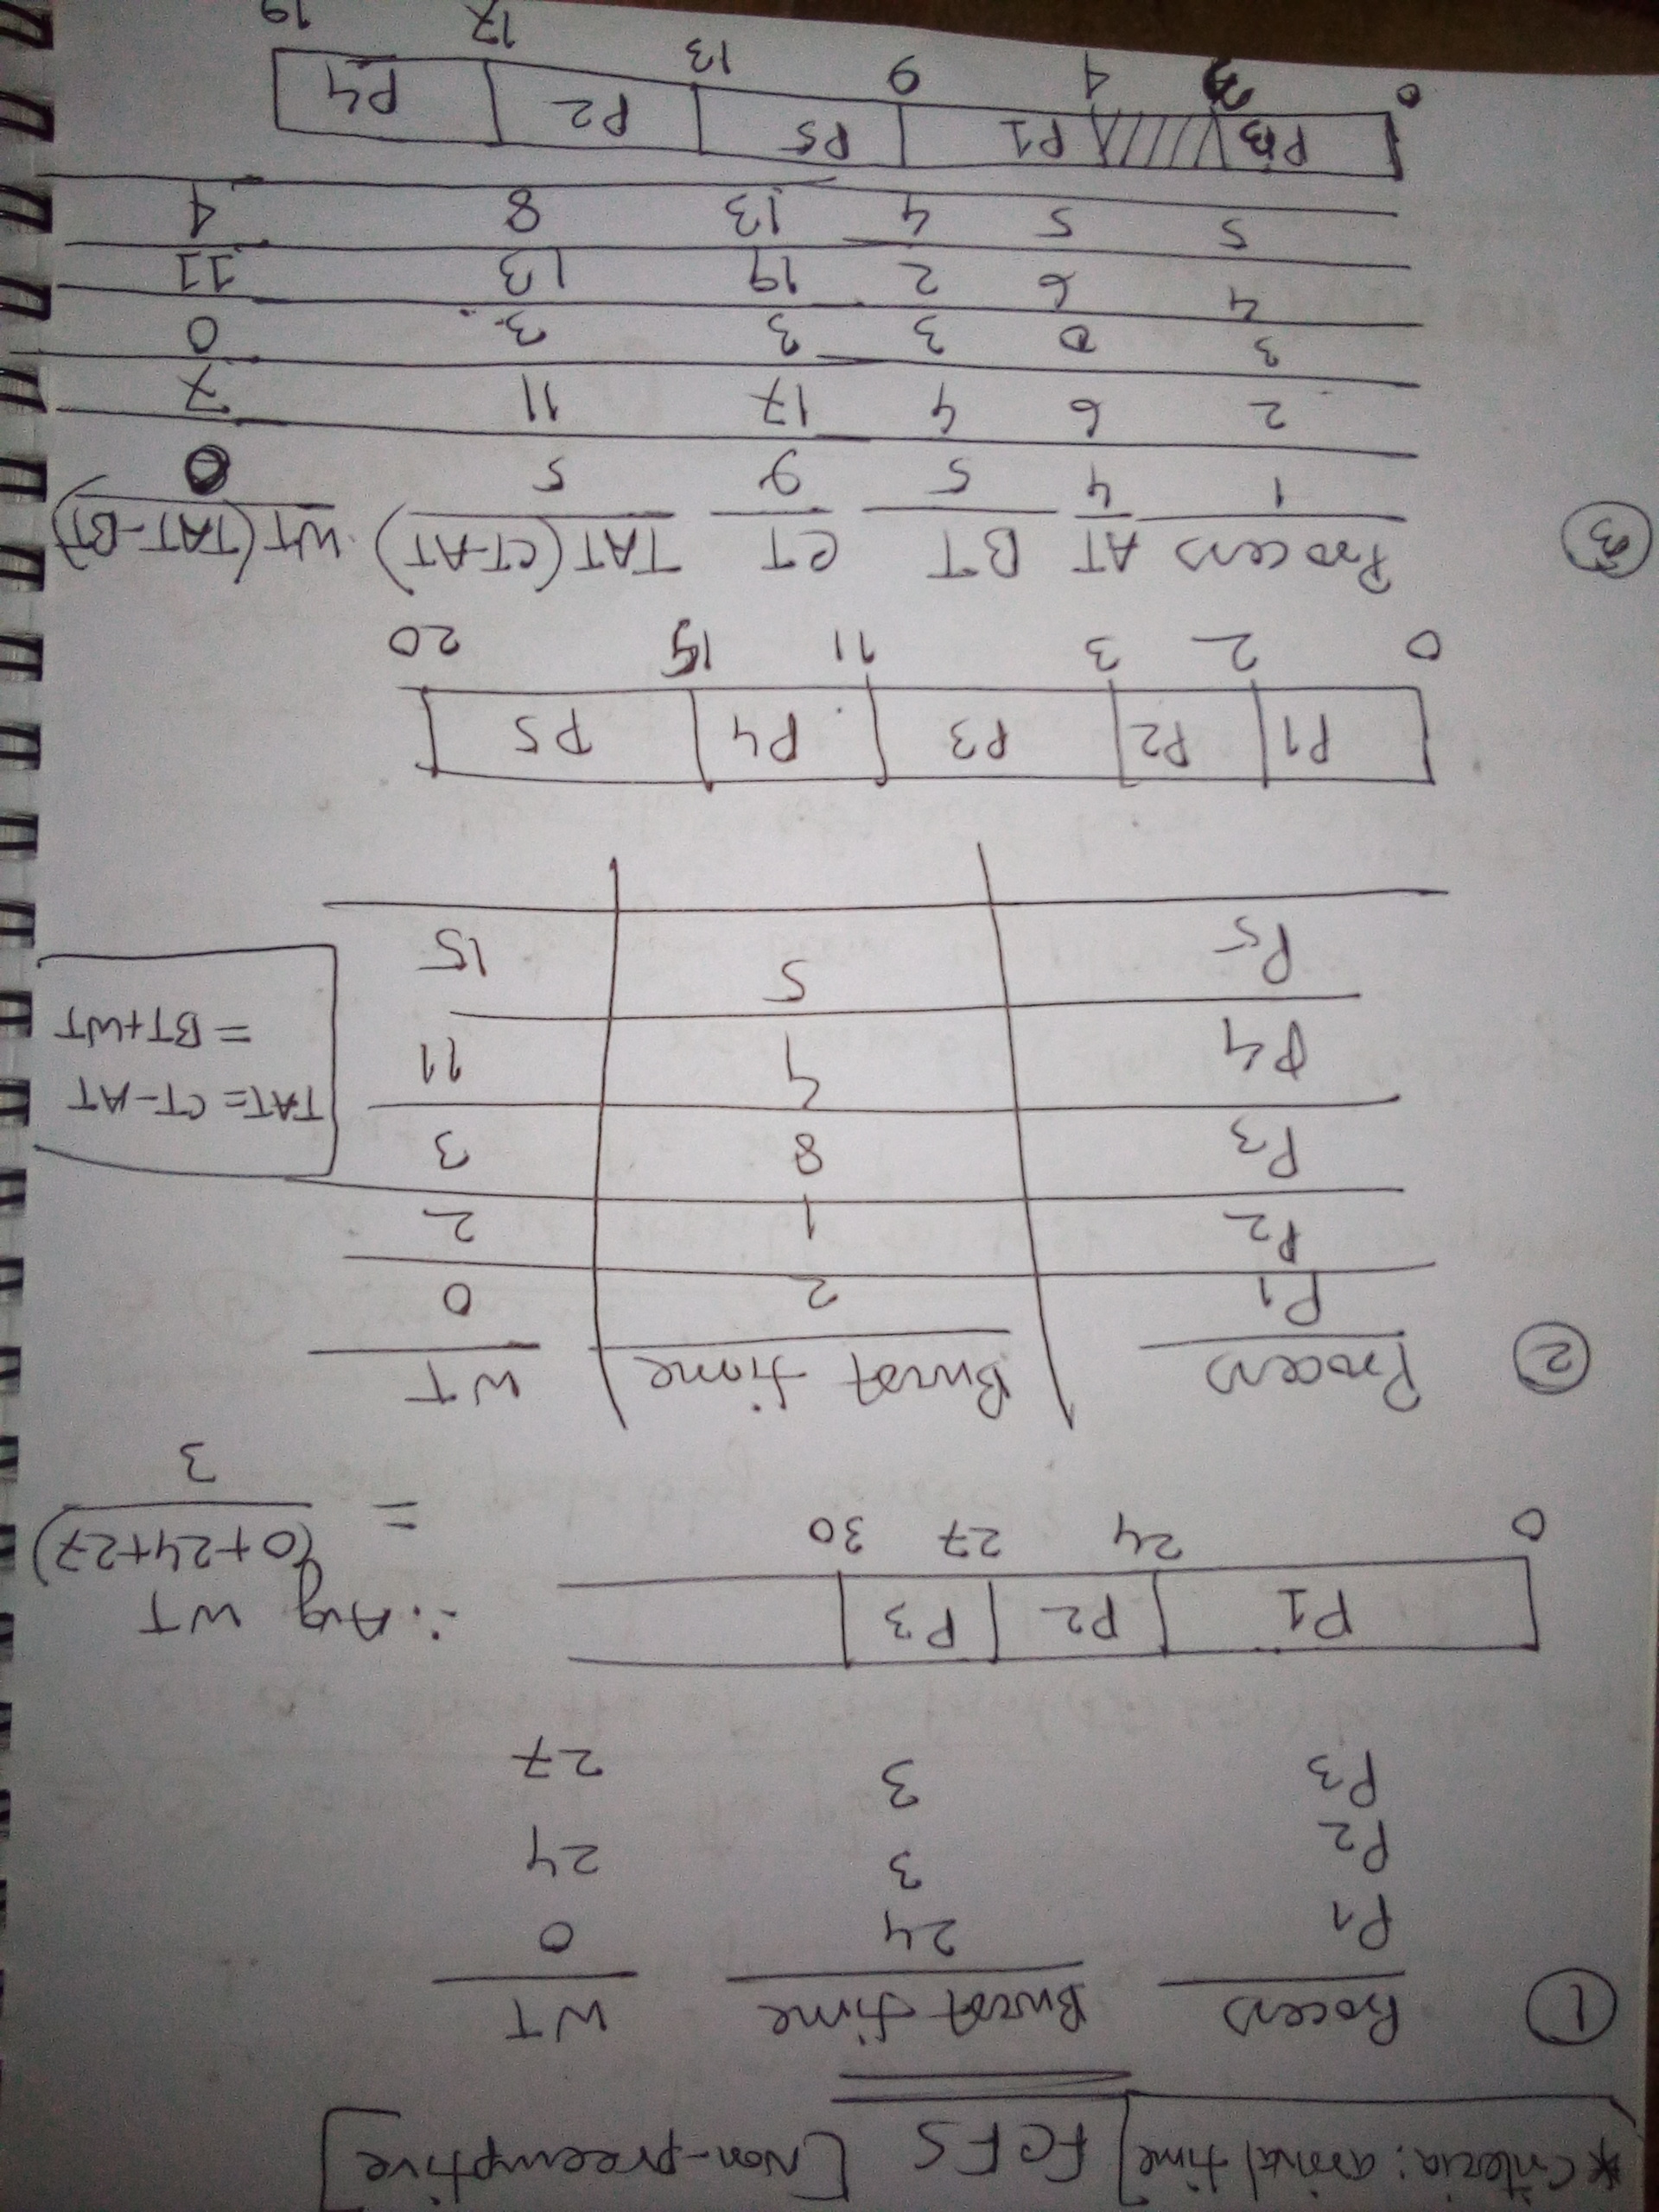 * Criteria: arrival time] FCFS [Non-preemptive]
① Process Burst time WT
P1 24 0
P2 3 24
P3 3 27
P1 P2 P3
0 24 27 30
∴ Avg WT
= (0+24+27)
3
② Process Burst time WT
P1 2 0
P2 1 2
P3 8 3
P4 4 11
P5 5 15
TAT= CT-AT
= BT+WT
P1 P2 P3 P4 P5
0 2 3 11 15 20
③ Process AT BT CT TAT(CT-AT) WT(TAT-BT)
1 4 5 9 5 0
2 6 4 17 11 7
3 0 3 3 3 0
4 6 2 19 13 11
5 5 4 13 8 4
P3 P1 P5 P2 P4
0 3 4 9 13 17 19